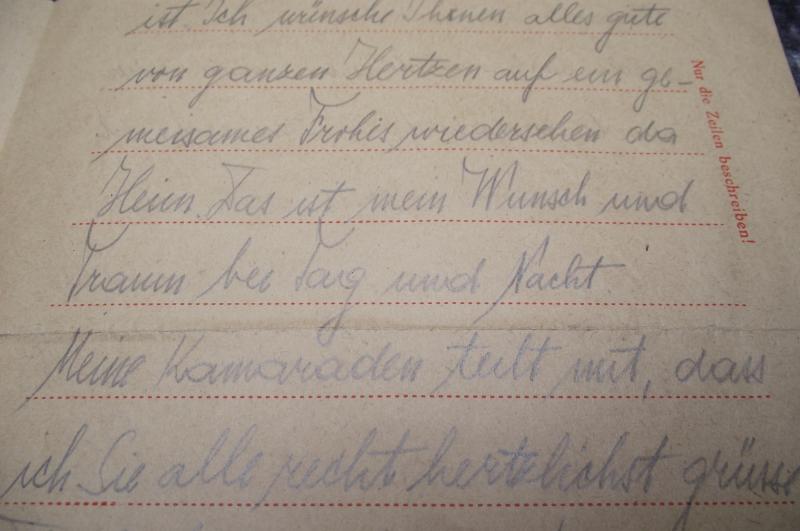 ist. Ich wünsche Ihnen alles gute
von ganzen Hertzen auf ein ge-
meisames Frohis wiedersehen da
Heim. Das ist mein Wunsch und
Traum bei Tag und Nacht.
Meine Kamaraden teilt mit, dass
ich Sie alle recht hertzlichst grüsse
Nur die Zeilen beschreiben!